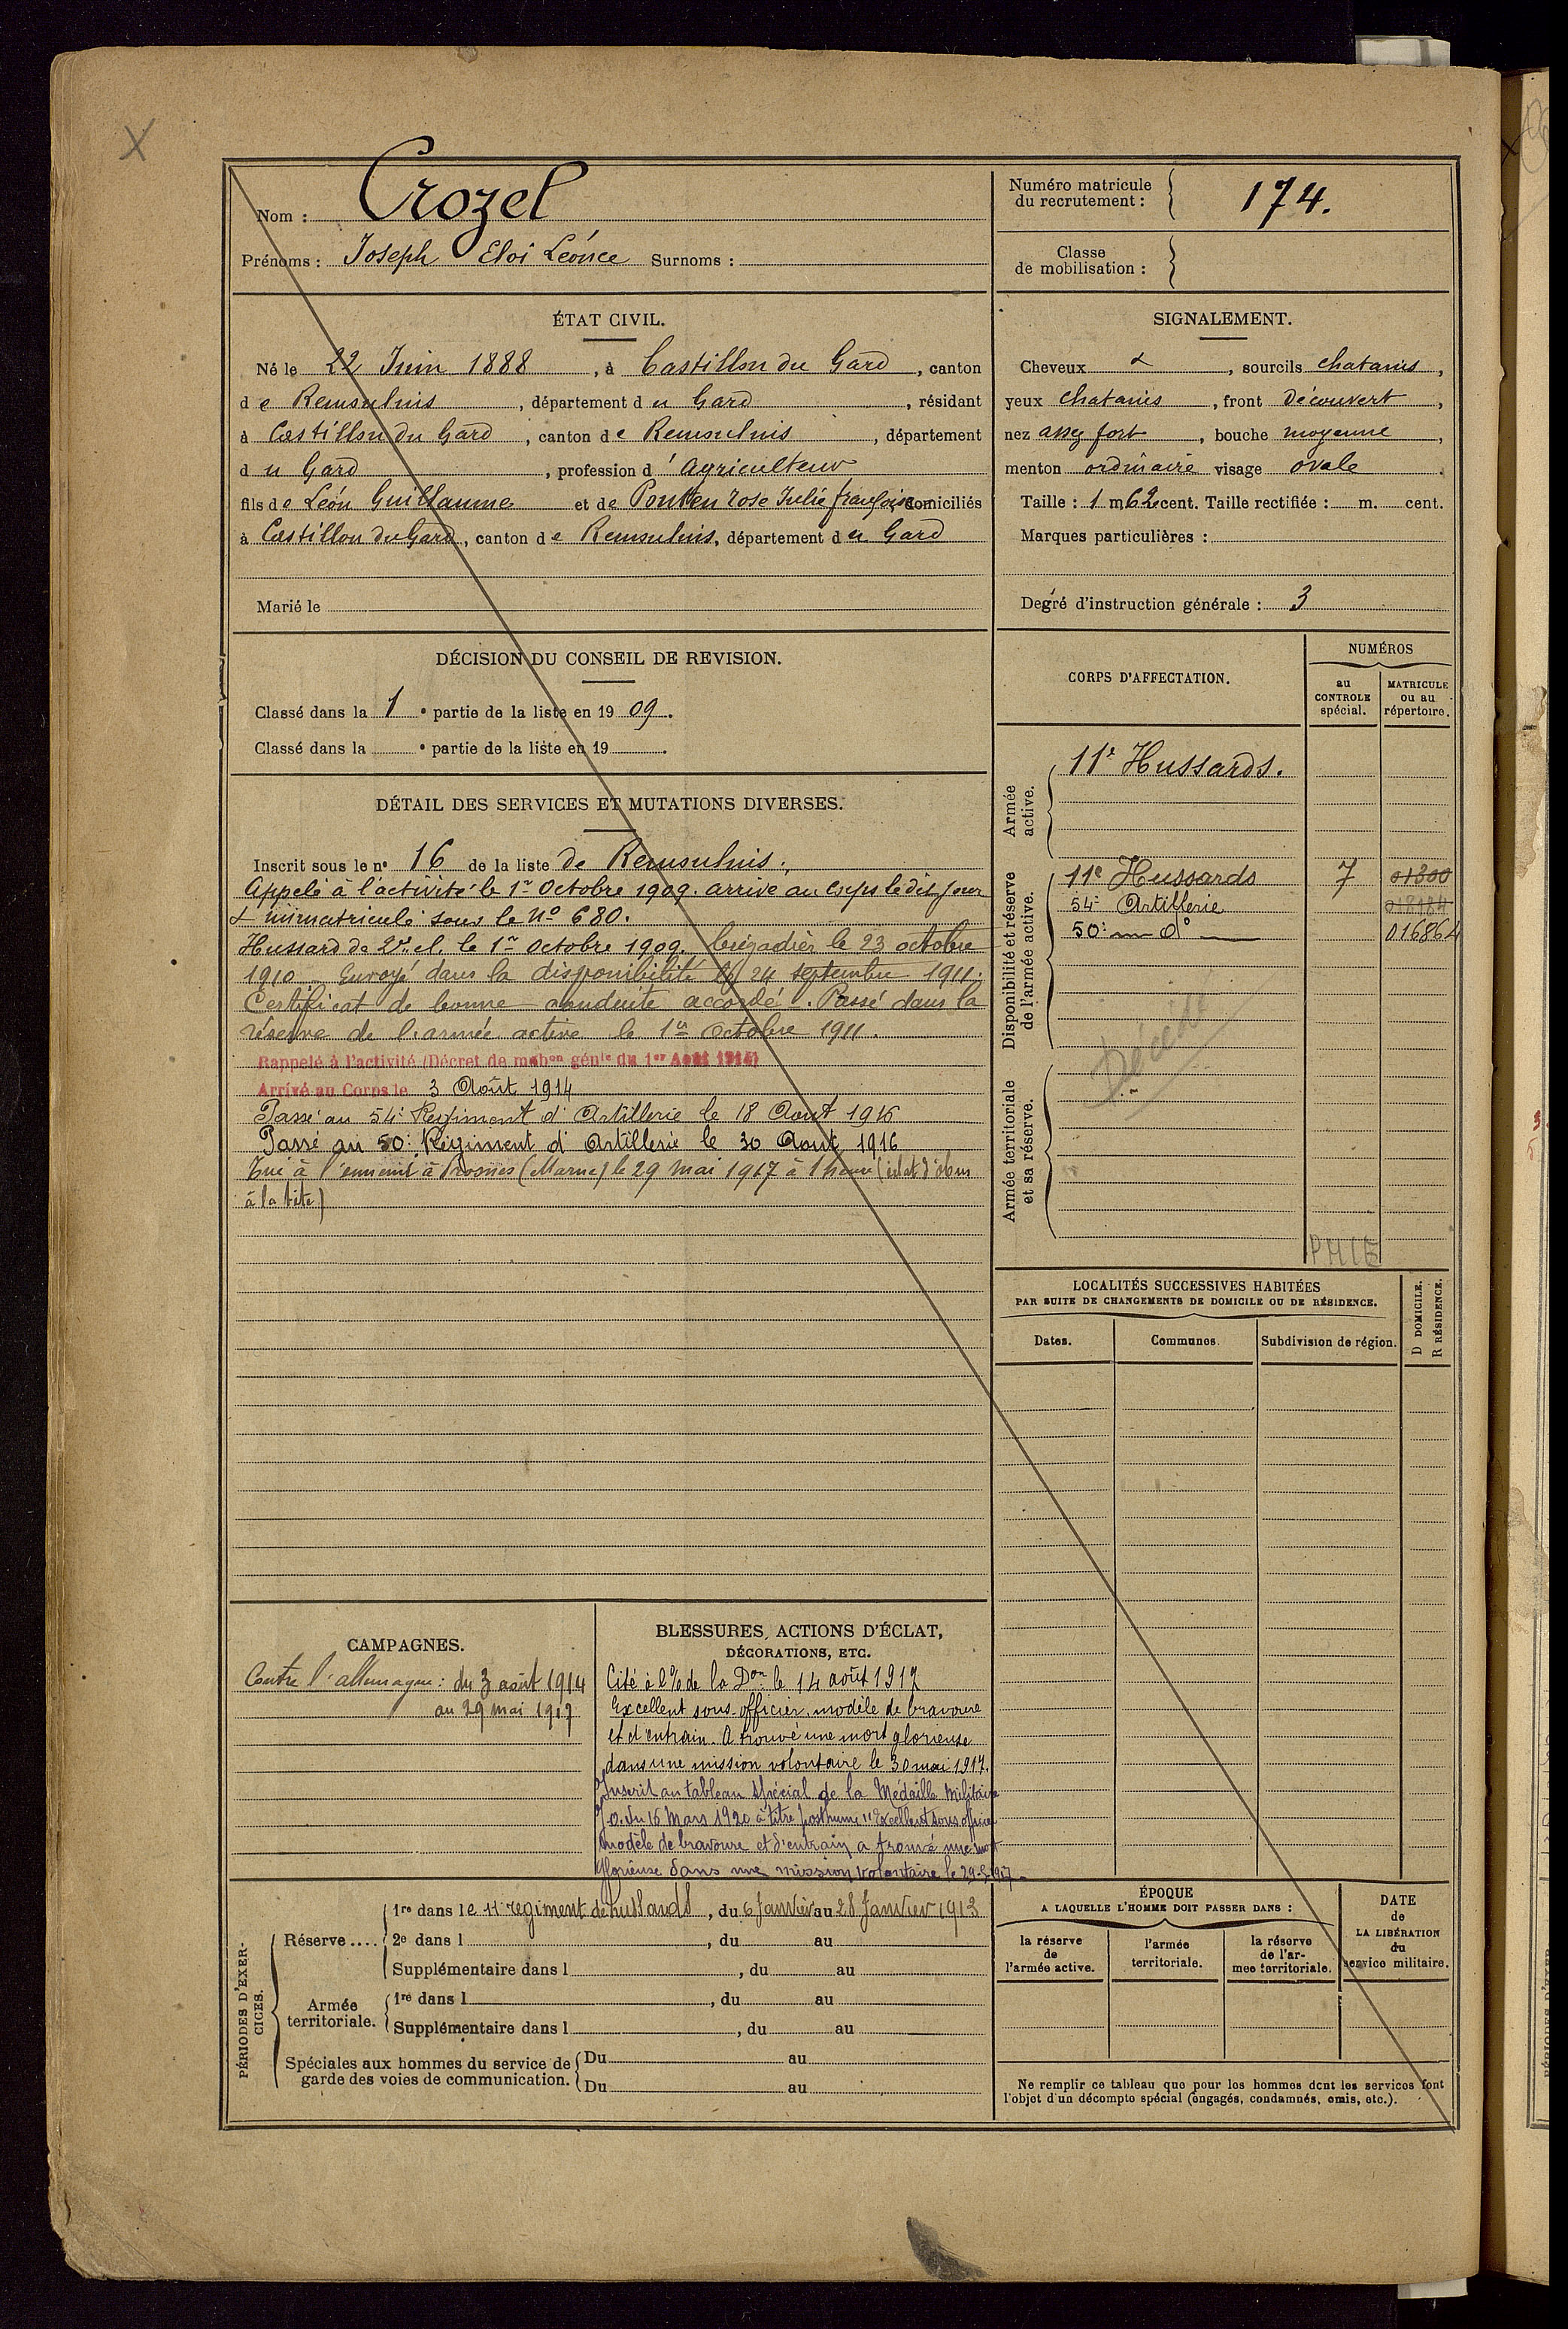 Nom : Crozel
Prénoms : Joseph Eloi Léonce Surnoms :
Numéro matricule
du recrutement : 174.
Classe
de mobilisation :
ÉTAT CIVIL.
Né le 22 Juin 1888, à Castillon du Gard, canton
de Remoulins, département du Gard, résidant
à Castillon du Gard, canton de Remoulins, département
du Gard, profession d'Agriculteur
fils de Léon Guillaume et de Rose Julie françoise domiciliés
à Castillon du Gard, canton de Remoulins, département du Gard
Marié le
SIGNALEMENT.
Cheveux &, sourcils chatains,
yeux chatains, front Découvert,
nez assez fort, bouche moyenne,
menton ordinaire visage ovale
Taille : 1 m. 62 cent. Taille rectifiée : m. cent.
Marques particulières :
Degré d'instruction générale : 3
DÉCISION DU CONSEIL DE REVISION.
Classé dans la 1e partie de la liste en 1909.
Classé dans la e partie de la liste en 19 .
DÉTAIL DES SERVICES ET MUTATIONS DIVERSES.
Inscrit sous le n° 16 de la liste de Remoulins.
Appelé à l'activité le 1er Octobre 1909. arrivé au Corps le dit jour
& immatriculé sous le No 680.
Hussard de 2e cl. le 1er Octobre 1909. brigadier le 23 octobre
1910. Envoyé dans la disponibilité le 24 septembre 1911.
Certificat de bonne conduite accordé. Passé dans la
réserve de l'armée active le 1er Octobre 1911.
Rappelé à l'activité (Décret de mobon génle du 1er Août 1914)
Arrivé au Corps le 3 Août 1914
Passé au 54e Régiment d'Artillerie le 18 Aout 1916
Passé au 50e Régiment d'Artillerie le 30 Aout 1916
Tué à l'ennemi à Prosnes (Marne) le 29 mai 1917 à 1 heure (éclat d'obus
à la tête)
CORPS D'AFFECTATION.
NUMÉROS
au
CONTROLE
spécial.
MATRICULE
ou au
répertoire.
Armée
active.
11e Hussards.
Disponibilité et réserve
de l'armée active.
11e Hussards 7 01800
54e Artillerie 018184
50e — do — 016864
Décédé
Armée territoriale
et sa réserve.
LOCALITÉS SUCCESSIVES HABITÉES
PAR SUITE DE CHANGEMENTS DE DOMICILE OU DE RÉSIDENCE.
Dates.
Communes
Subdivision de région.
D DOMICILE.
R RÉSIDENCE.
CAMPAGNES.
Contre l'allemagne : du 3 août 1914
au 29 mai 1917
BLESSURES, ACTIONS D'ÉCLAT,
DÉCORATIONS, ETC.
Cité à l'% de la Don le 14 août 1917
Excellent sous-officier, modèle de bravoure
et d'entrain. A trouvé une mort glorieuse
dans une mission volontaire le 30 mai 1917.
Inscrit au tableau spécial de la Médaille Militaire
J.O. du 15 Mars 1920 à titre posthume "Excellent sous officier
modèle de bravoure et d'entrain a trouvé une mort
glorieuse dans une mission volontaire le 29-5-1917
PÉRIODES D'EXER-
CICES.
Réserve ....
1re dans le 11e régiment de hussards, du 6 Janvier au 28 Janvier 1913
2e dans l , du au
Supplémentaire dans l , du au
Armée
territoriale.
1re dans l , du au
Supplémentaire dans l , du au
Spéciales aux hommes du service de
garde des voies de communication.
Du au
Du au
ÉPOQUE
A LAQUELLE L'HOMME DOIT PASSER DANS :
la réserve
de
l'armée active.
l'armée
territoriale.
la réserve
de l'ar-
mee territoriale.
DATE
de
LA LIBÉRATION
du
service militaire.
Ne remplir ce tableau que pour les hommes dont les services font
l'objet d'un décompte spécial (engagés, condamnés, omis, etc.).